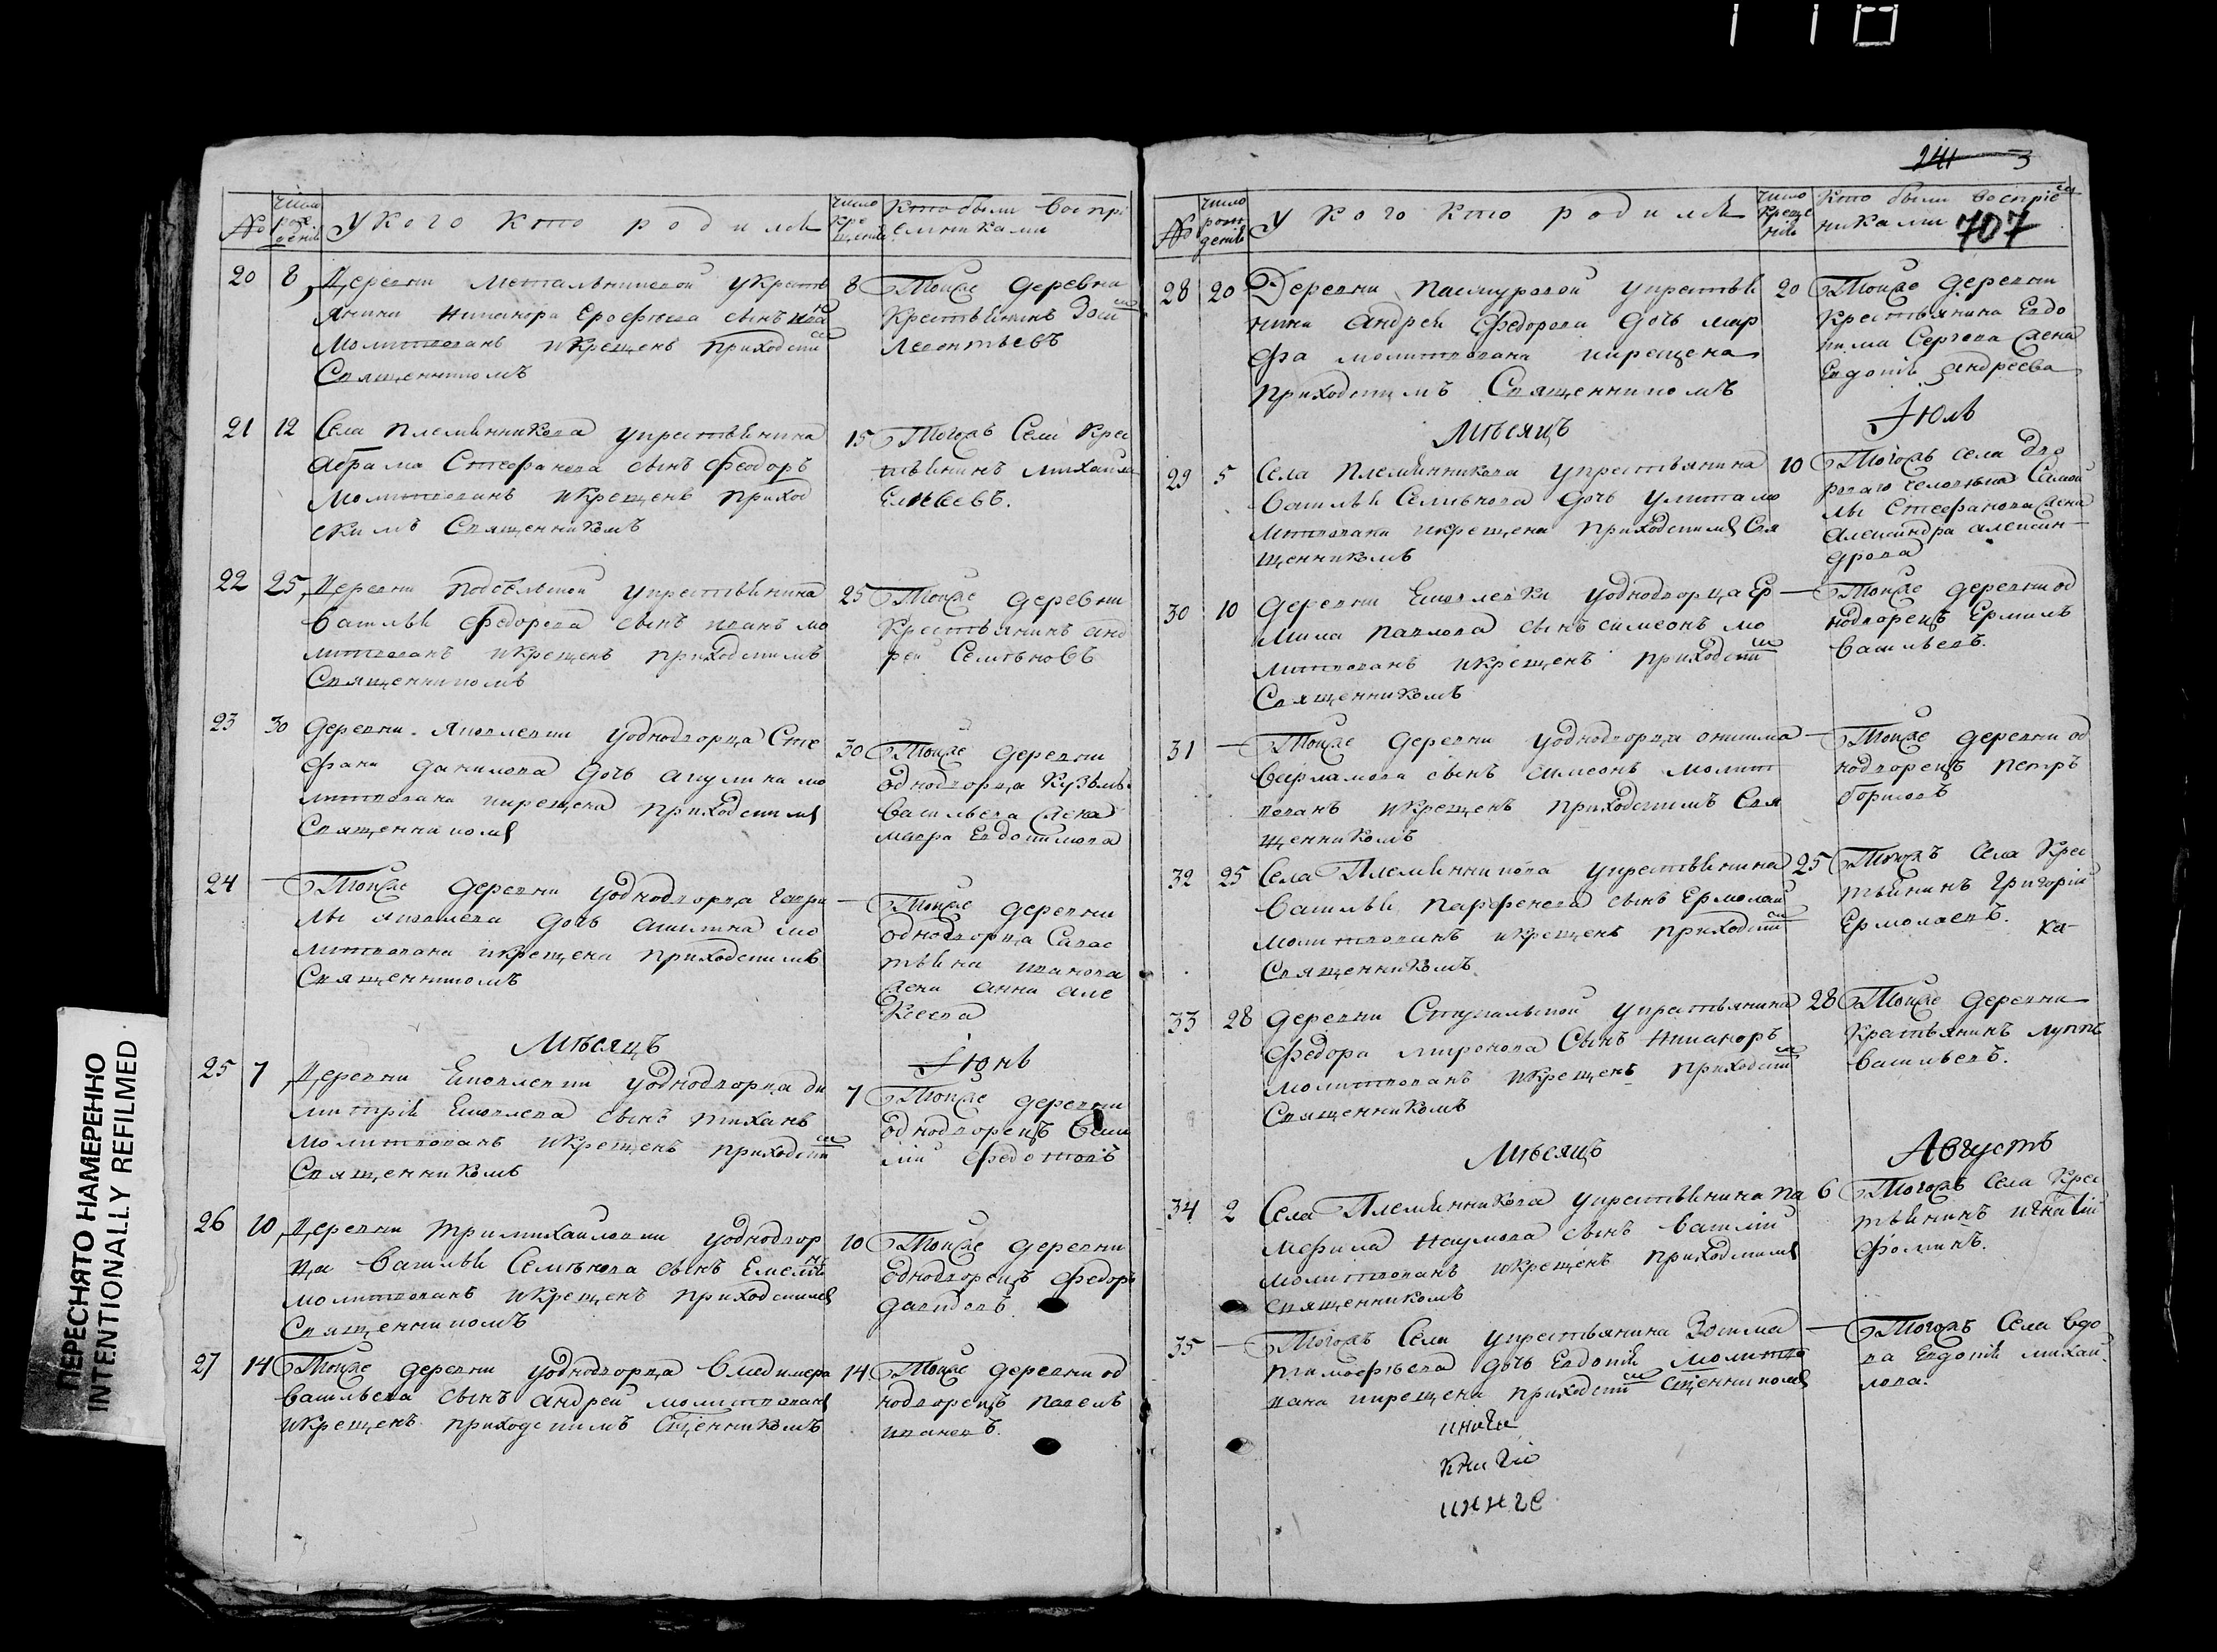 110
241
3
707
№ число рождения У кого кто родился число крещения Кто были воспри
емниками
20 8 Деревни Метальниковой у крестья
янина Никанора Ерофеева сынъ
Молитвованъ и крещенъ приходским
Священникомъ
8 Тойже деревни
Крестьянинъ
Леонтьевъ
21 12 Села Племянникова у крестьянина
Абрама Стефанова сынъ Феодоръ
Молитвованъ и крещенъ приход
скимъ Священникомъ
15 Тогожъ села крес
тьянинъ Михаила
Елисеевъ.
22 25 Деревни Подсельной у крестьянина
Василья Федорова сынъ Иванъ мо
литвованъ и крещенъ приходскимъ
Священникомъ
25 Тойже деревни
Крестьянинъ Анд
рей Семеновъ
23 30 деревни Яковлевки у однодворца Сте
фана Данилова дочь Акулина мо
литвована и крещена приходскимъ
Священникомъ
30 Тойже деревни
однодворца Кузьмы
Васильева жена
Мавра Евдокимова
24 — Тойже деревни у однодворца Гаври
лы Яковлева дочь Акилина мо
литвована и крещена приходскимъ
Священникомъ
— Тойже деревни
однодворца Савас
тьяна Иванова
жена Анна Але
ксеева
Месяцъ Iюнь
25 7 Деревни Яковлевки у однодворца Ди
митрiя Яковлева сынъ Тиханъ
молитвованъ и крещенъ приходским
Священникомъ
7 Тойже деревни
однодворецъ Васи
лiй Федотовъ
26 10 Деревни Тримихайловки у однодвор
ца Василья Семенова сынъ Емельян
молитвованъ и крещенъ приходскимъ
Священникомъ
10 Тойже деревни
Однодворецъ Федоръ
Давидовъ
27 14 Тойже деревни у однодворца Владимера
Васильева сынъ Андрей молитвованъ
и крещенъ приходскимъ Сщенникомъ
14 Тойже деревни од
нодворецъ Павелъ
Ивановъ.
№ число рождения У кого кто родился число крещения Кто были восприем
никами
28 20 Деревни Пасмуровой у крестья
нина Андрея Федорова дочь Мар
фа молитвована и крещена
приходскимъ Священникомъ
20 Тойже деревни
Крестьянина Евдо
кима Сергеева жена
Евдотья Андреева
Месяцъ Iюль
29 5 Села Племянникова у крестьянина
Василья Семенова дочь Улита мо
литвована и крещена приходскимъ Свя
щенникомъ
10 Тогожъ села Дво
роваго человека Самой
лы Стефанова жена
Александра Алексан
дрова
30 10 деревни Яковлевки у однодворца Ер
мила Павлова сынъ Симеонъ мо
литвованъ и крещенъ приходским
Священникомъ
— Тойже деревни од
нодворецъ Ермилъ
Васильевъ.
31 — Тойже деревни у однодворца Онисима
Варламова сынъ Симеонъ молит
вованъ и крещенъ приходскимъ Свя
щенникомъ
— Тойже деревни од
нодворецъ Петръ
Борисовъ
32 25 Села Племянникова у крестьянина
Василья Парфенова сынъ Ермолай
молитвованъ и крещенъ приходским
Священникомъ.
25 Тогожъ села Крес
тьянинъ Григорiй
Ермолаевъ.
ка-
33 28 деревни Ступальной у крестьянина
Федора Миронова Сынъ Никаноръ
молитвованъ и крещенъ приходским
Священникомъ
28 Тойже деревни
Крестьянинъ Луппъ
Васильевъ.
Месяцъ Августъ
34 2 Села Племянникова у крестьянина Па
мфила Наумова сынъ Василiй
молитвованъ и крещенъ приходскимъ
священникомъ
6 Тогожъ села Крес
тьянинъ Игнатiй
Фоминъ.
35 — Тогожъ Села у крестьянина Зосима
Тимофеева дочь Евдотья молитво
вана и крещена приходским Сщенникомъ
— Тогожъ Села вдо
ва Евдотья Михай
лова.
ПЕРЕСНЯТО НАМЕРЕННО
INTENTIONALLY REFILMED